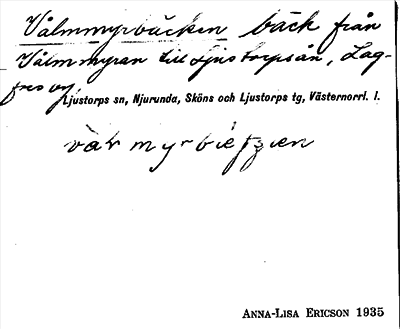 Vålmmyrbäcken bäck från
Vålmmyran till Ljustorpsån, Lag-
fors by,
Ljustorps sn, Njurunda, Sköns och Ljustorps tg, Västernorrl. l.
ANNA-LISA ERICSON 1935